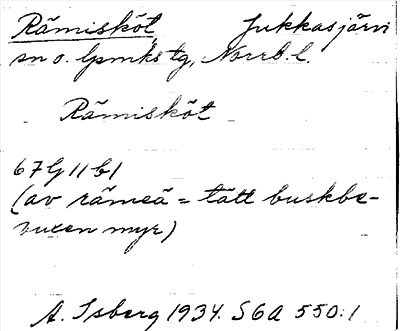 Rämisköt Jukkasjärvi
sn o. lpmks tg, Norrb. l.
Rämisköt
67G11b1
(av rämeä = tätt buskbe-
vuxen myr)
A. Isberg 1934. SGA 550:1